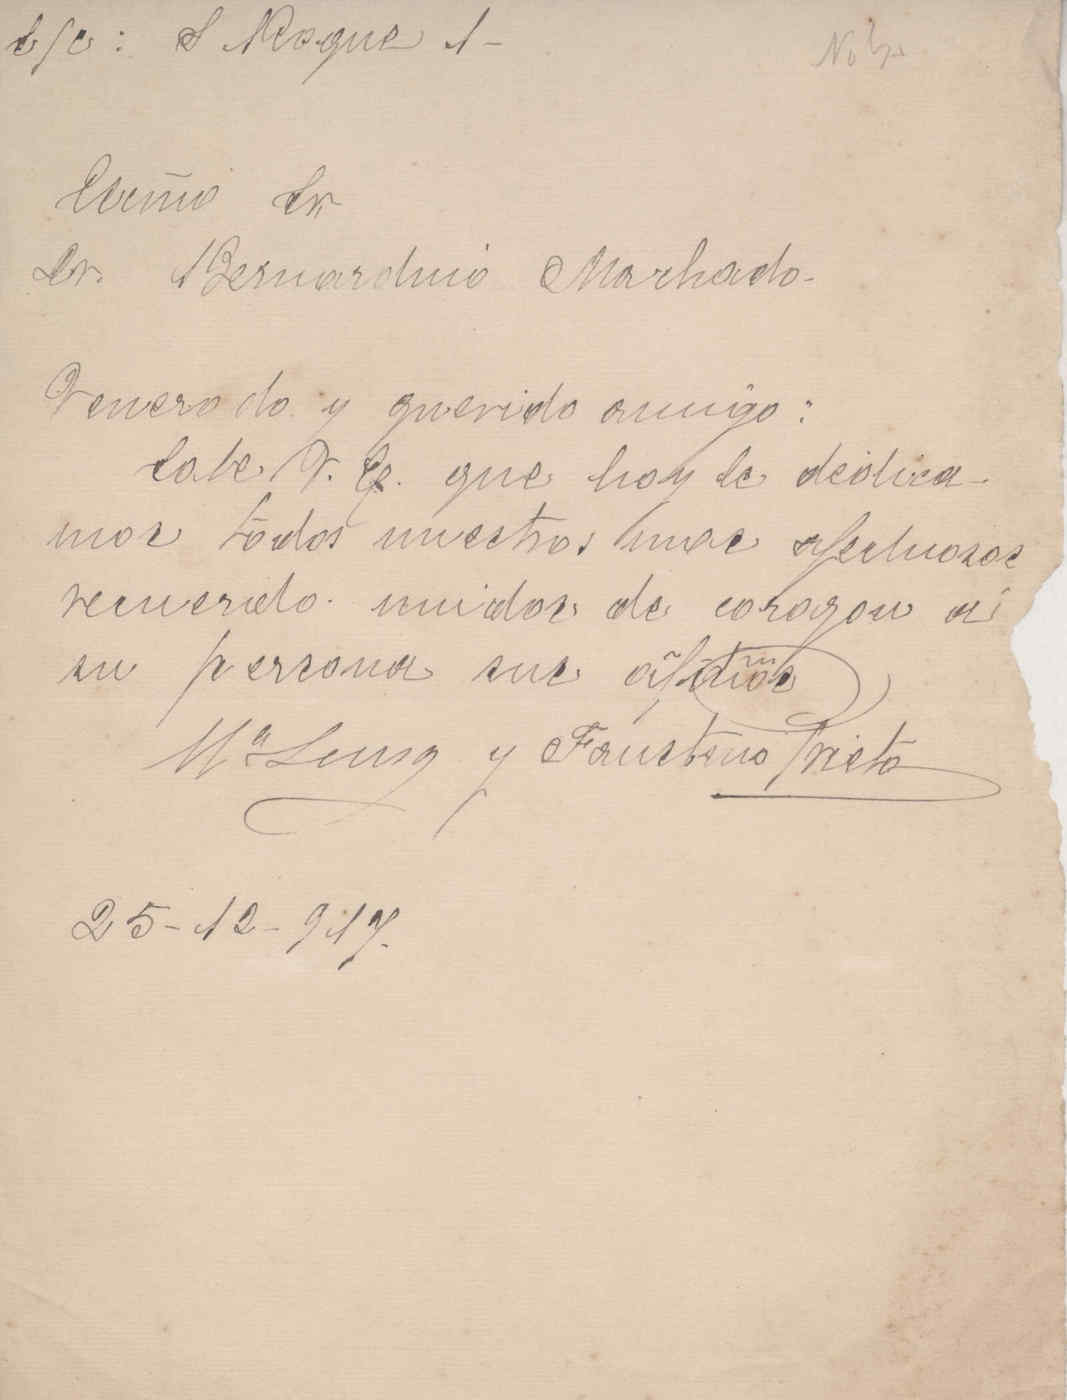 s/c: S Roque 1-
Excmo Sr
Dr. Bernardino Machado-
Venerado y querido amigo:
Sabe V. E. que hoy le dedica-
mos todos nuestros mas afectuosos
recuerdo. unidos de corazon a
su persona sus
Mª Luisa y Faustino Prieto
25-12-917.